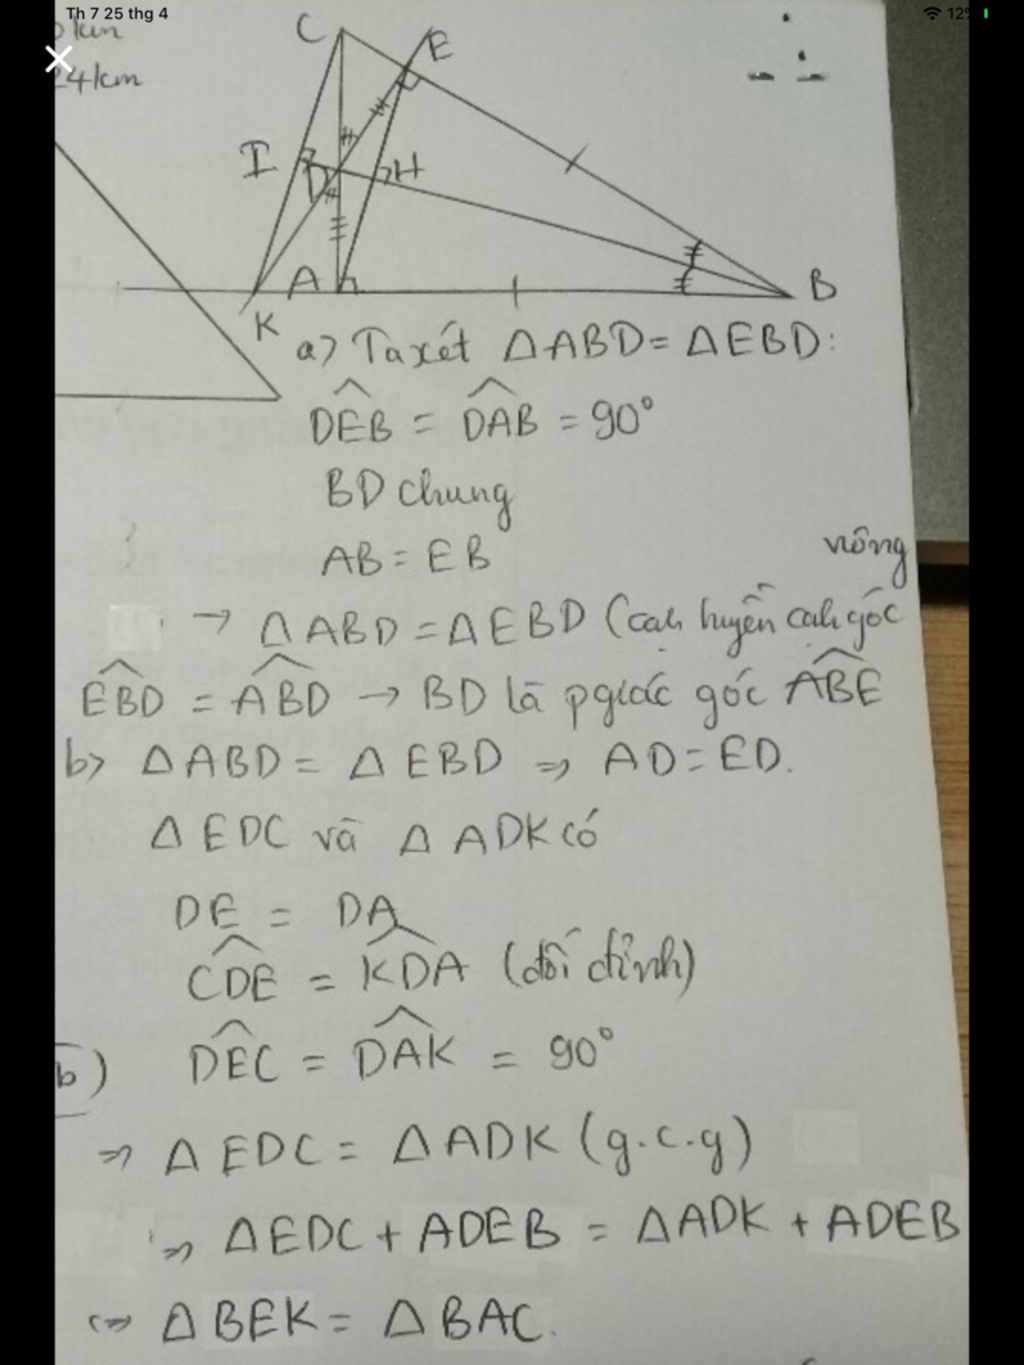 Th 7 25 thg 4
12%
km
24km
C
E
I
D
H
A
B
K
a) Ta xét ΔABD = ΔEBD:
DEB = DAB = 90°
BD chung
AB = EB
→ ΔABD = ΔEBD (cah huyền cah góc
vuông
EBD = ABD → BD là pgiác góc ABE
b> ΔABD = ΔEBD ⇒ AD = ED.
ΔEDC và ΔADK có
DE = DA
CDE = KDA (đối đỉnh)
b) DEC = DAK = 90°
⇒ ΔEDC = ΔADK (g.c.g)
⇒ ΔEDC + ADEB = ΔADK + ADEB
⇔ ΔBEK = ΔBAC.